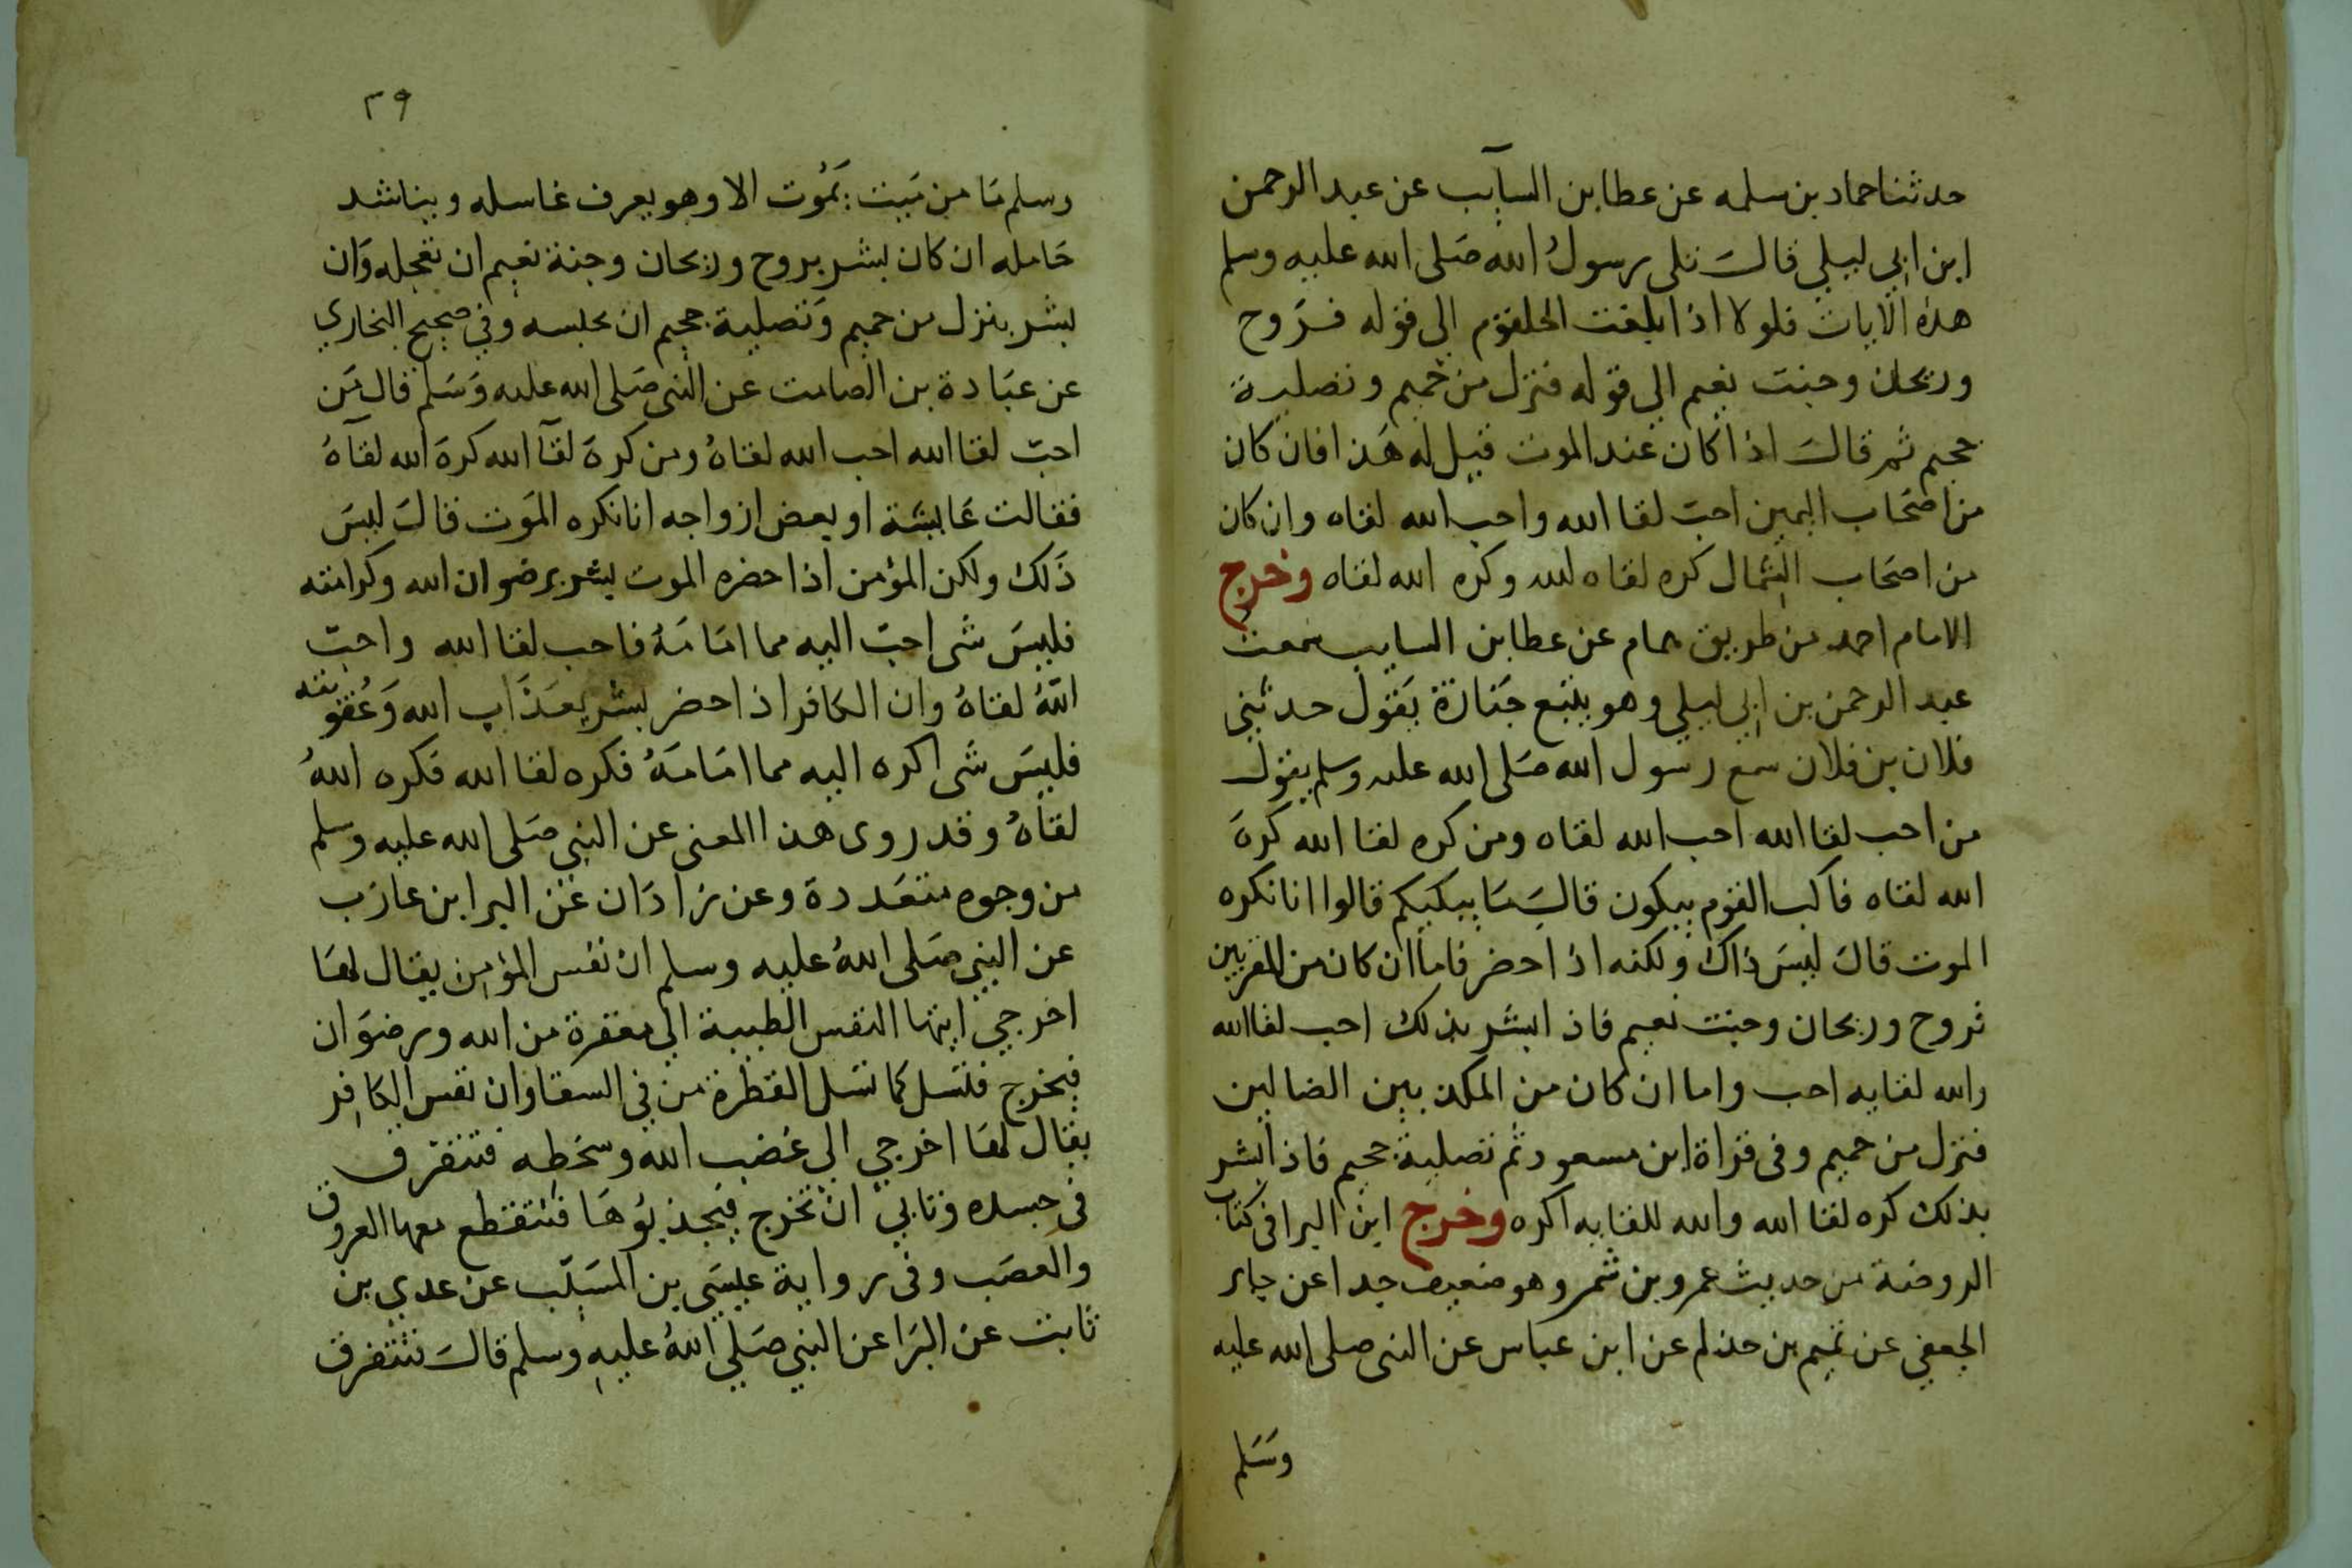 حدثنا حماد بن سلمه عن عطا بن السآيب عن عبد الرحمن
ابن ابي ليلي قالَ تلى رسولُ الله صَلى الله عليه وسلم
هذه الايات فلولا اذا بلغت الحلقوم الى قوله فـرَوح
وريحان وجنت نعيم الى قوله فنزل من حميم وتصلية
جحيم ثم قالَ اذا كان عند الموت قيل له هَذا فان كان
من اصحَاب اليمين احبّ لقا الله واحب الله لقاه وان كان
من اصحَاب الشمال كره لقاه لله وكره الله لقاه وخرج
الامام احمد من طريق همام عن عطا بن السايب سمعت
عبد الرحمن بن ابي ليلي وهو يتبع جَنازة يَقول حدثني
فلان بن فلان سمع رسول الله صَلى الله عليه وسلم يقول
من احب لقا الله احب الله لقاه ومن كره لقا الله كرهَ
الله لقاه فاكب القوم يبكون قالَ مَا يبكيكم قالوا انا نكره
الموت قالَ ليسَ ذاك ولكنه اذا حضر فاما ان كان من المقربين
فروح وريحان وجنت نعيم فاذا بشر بذلك احب لقا الله
والله لقايه احب واما ان كان من المكذبين الضالين
فنزل من حميم وفى قراة ابن مسعود ثم تصلية جحيم فاذا بشر
بذلك كره لقا الله والله للقايه اكره وخرج ابن البرا فى كتاب
الروضة من حديث عمرو بن شمر وهو ضعيف جدا عن جابر
الجعفي عن تميم بن حذلم عن ابن عباس عن النبى صلى الله عليه
وسَلم
٣٩
وسلم مَا من مَيت يَمُوت الا وهو يعرف غاسله ويناشد
حَامله ان كان بشر بروح وريحان وجنة نعيم ان تعجله وَان
بشر بنزل من حميم وَتصلية جحيم ان يحلسه وفي صحيح البخاري
عن عبَادة بن الصامت عن النبى صَلى الله عليه وَسَلم قال مَن
احبّ لقا الله احب الله لقاهُ ومن كرهَ لقآ الله كرهَ الله لقآهُ
فقالت عَايشَة او بعض ازواجه انا نكره المَوت قالَ ليسَ
ذَلك ولكن المؤمن اذا حضره الموت بشر برضوان الله وكرامته
فليسَ شى احبّ اليه مما امَامَهُ فاحب لقا الله واحبّ
اللّهُ لقاهُ وان الكافر اذا حضر بشر بعَذَاب الله وَعُقوبته
فليسَ شَى اكره اليه مما امَامَهُ فكره لقا الله فكره اللهُ
لقاهُ وقد روى هذا المعنى عن النبي صَلى الله عليه وسلم
من وجوه متعَددة وعن زاذَان عَن البرا بن عازَب
عن النبي صَلى اللهُ عليه وسلم ان نفس المؤمن يقال لهَا
اخرجي ايتها النفس الطيبة الي مغفرة من الله ورضوَان
فيخرج فتسَل كما تسَل القطرة من في السقا وان نفس الكافِر
يقَال لهَا اخرجي الي غضب الله وسخطِه فتتفرق
في جسده وتابي ان تخرج فيجذبُوهَا فتتقطع معها العروق
والعصَب وفى رواية عيسَى بن المسَيّب عن عدي بن
ثابت عن البرَا عن النبي صَلي اللهُ عليه وسلم قالَ تتفرق